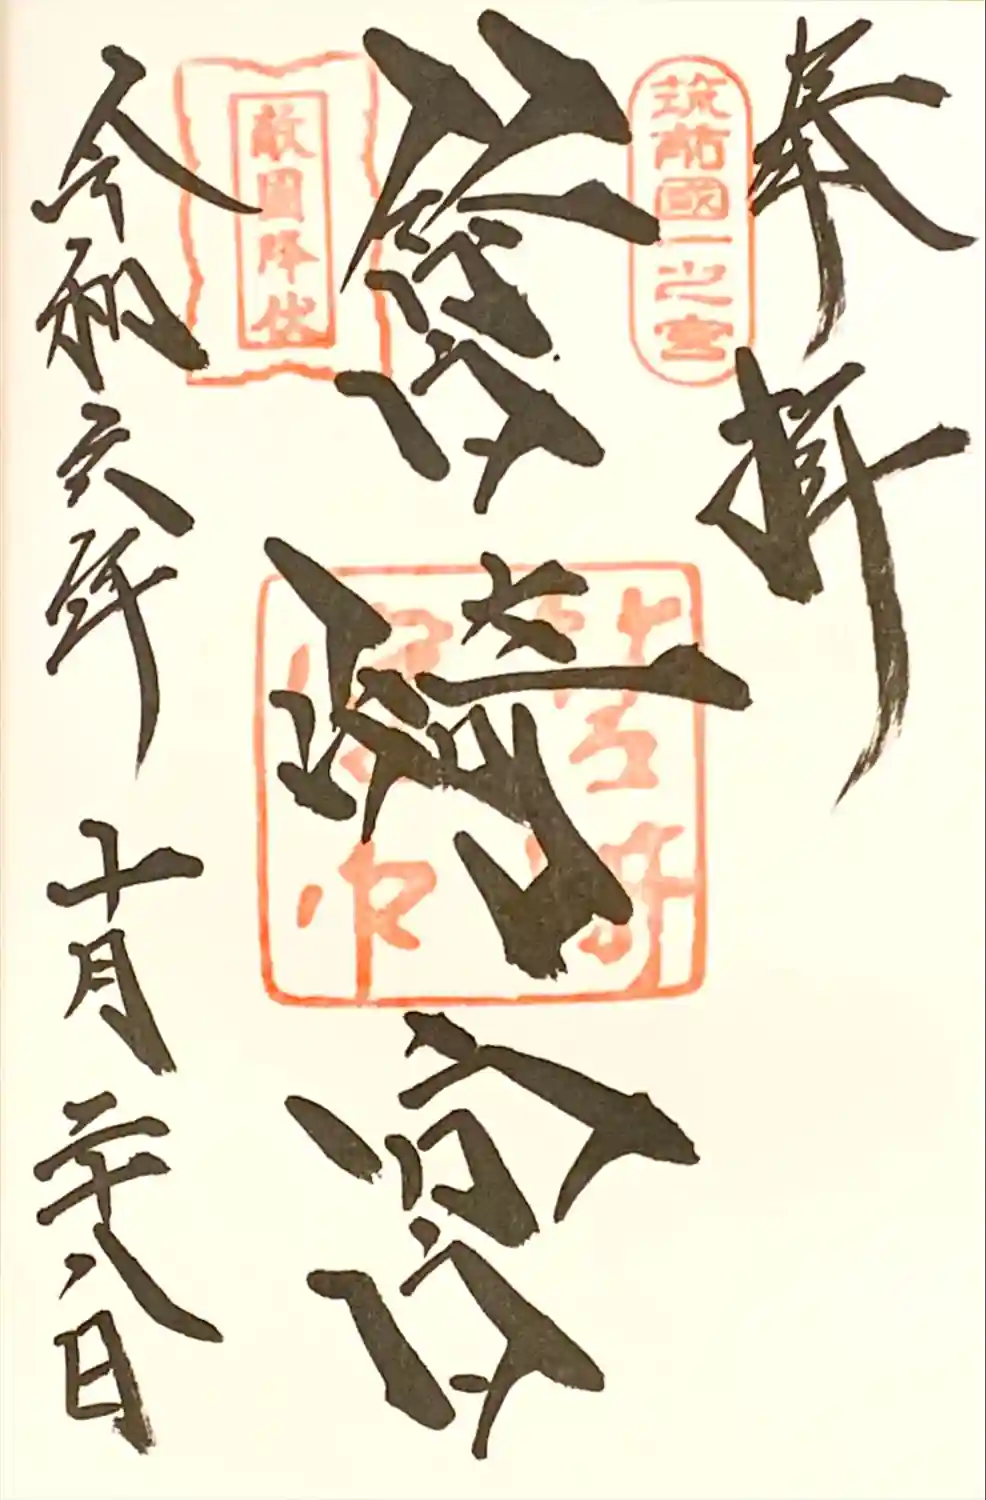 奉拝
筑前國一之宮
筥崎宮
敵國降伏
筥崎宮印
令和六年十月二十八日